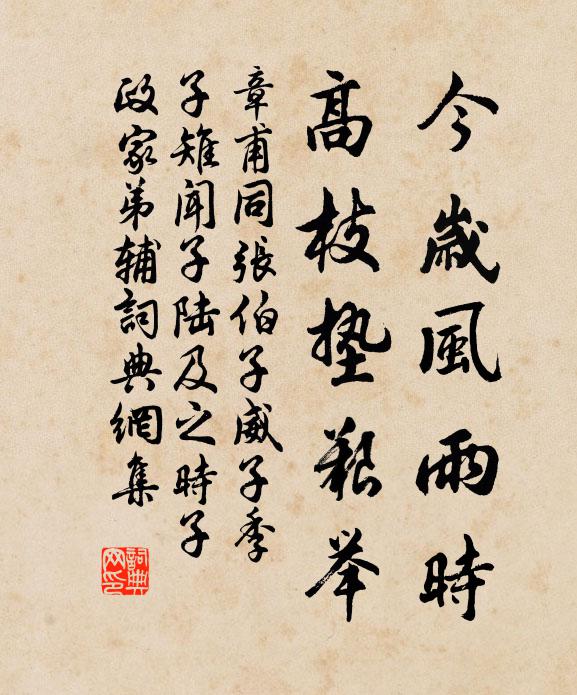 今歲風雨時
高枝墊艱举
章甫同張伯子威子季
子雉聞子陸及之時子
政家弟輔詞典網集
詞典网印